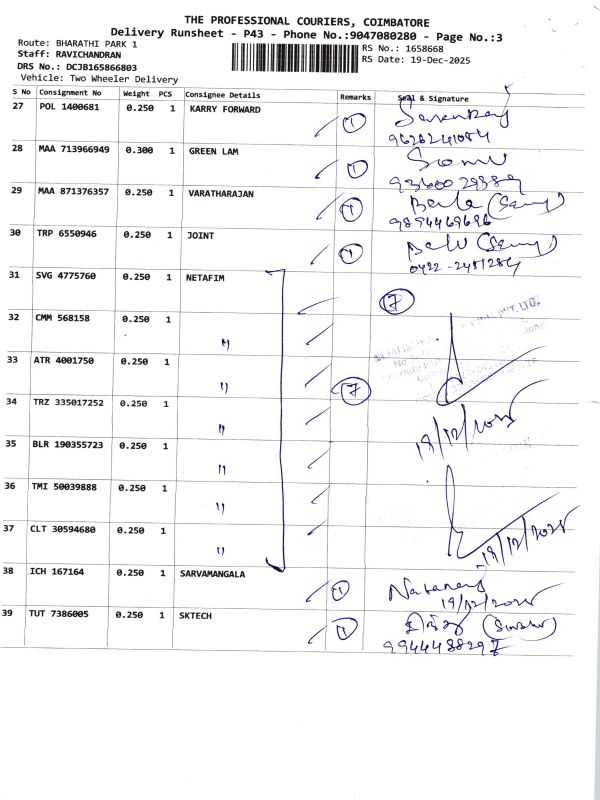 THE PROFESSIONAL COURIERS, COIMBATORE
Delivery Runsheet - P43 - Phone No.:9047080280 - Page No.:3
Route: BHARATHI PARK 1
Staff: RAVICHANDRAN
DRS No.: DCJB165866803
Vehicle: Two Wheeler Delivery
RS No.: 1658668
RS Date: 19-Dec-2025
S No Consignment No Weight PCS Consignee Details Remarks Seal & Signature
27 POL 1400681 0.250 1 KARRY FORWARD 1
28 MAA 713966949 0.300 1 GREEN LAM 1 Somu
9360029389
29 MAA 871376357 0.250 1 VARATHARAJAN 1
9894469696
30 TRP 6550946 0.250 1 JOINT 1
0422-2451284
31 SVG 4775760 0.250 1 NETAFIM 7
PVT. LTD.
32 CMM 568158 0.250 1 "
33 ATR 4001750 0.250 1 " 7
34 TRZ 335017252 0.250 1 "
19/12/2025
35 BLR 190355723 0.250 1 "
36 TMI 50039888 0.250 1 "
37 CLT 30594680 0.250 1 "
19/12/2025
38 ICH 167164 0.250 1 SARVAMANGALA 1 Nataraj
19/12/2025
39 TUT 7386005 0.250 1 SKTECH 1
9944488297